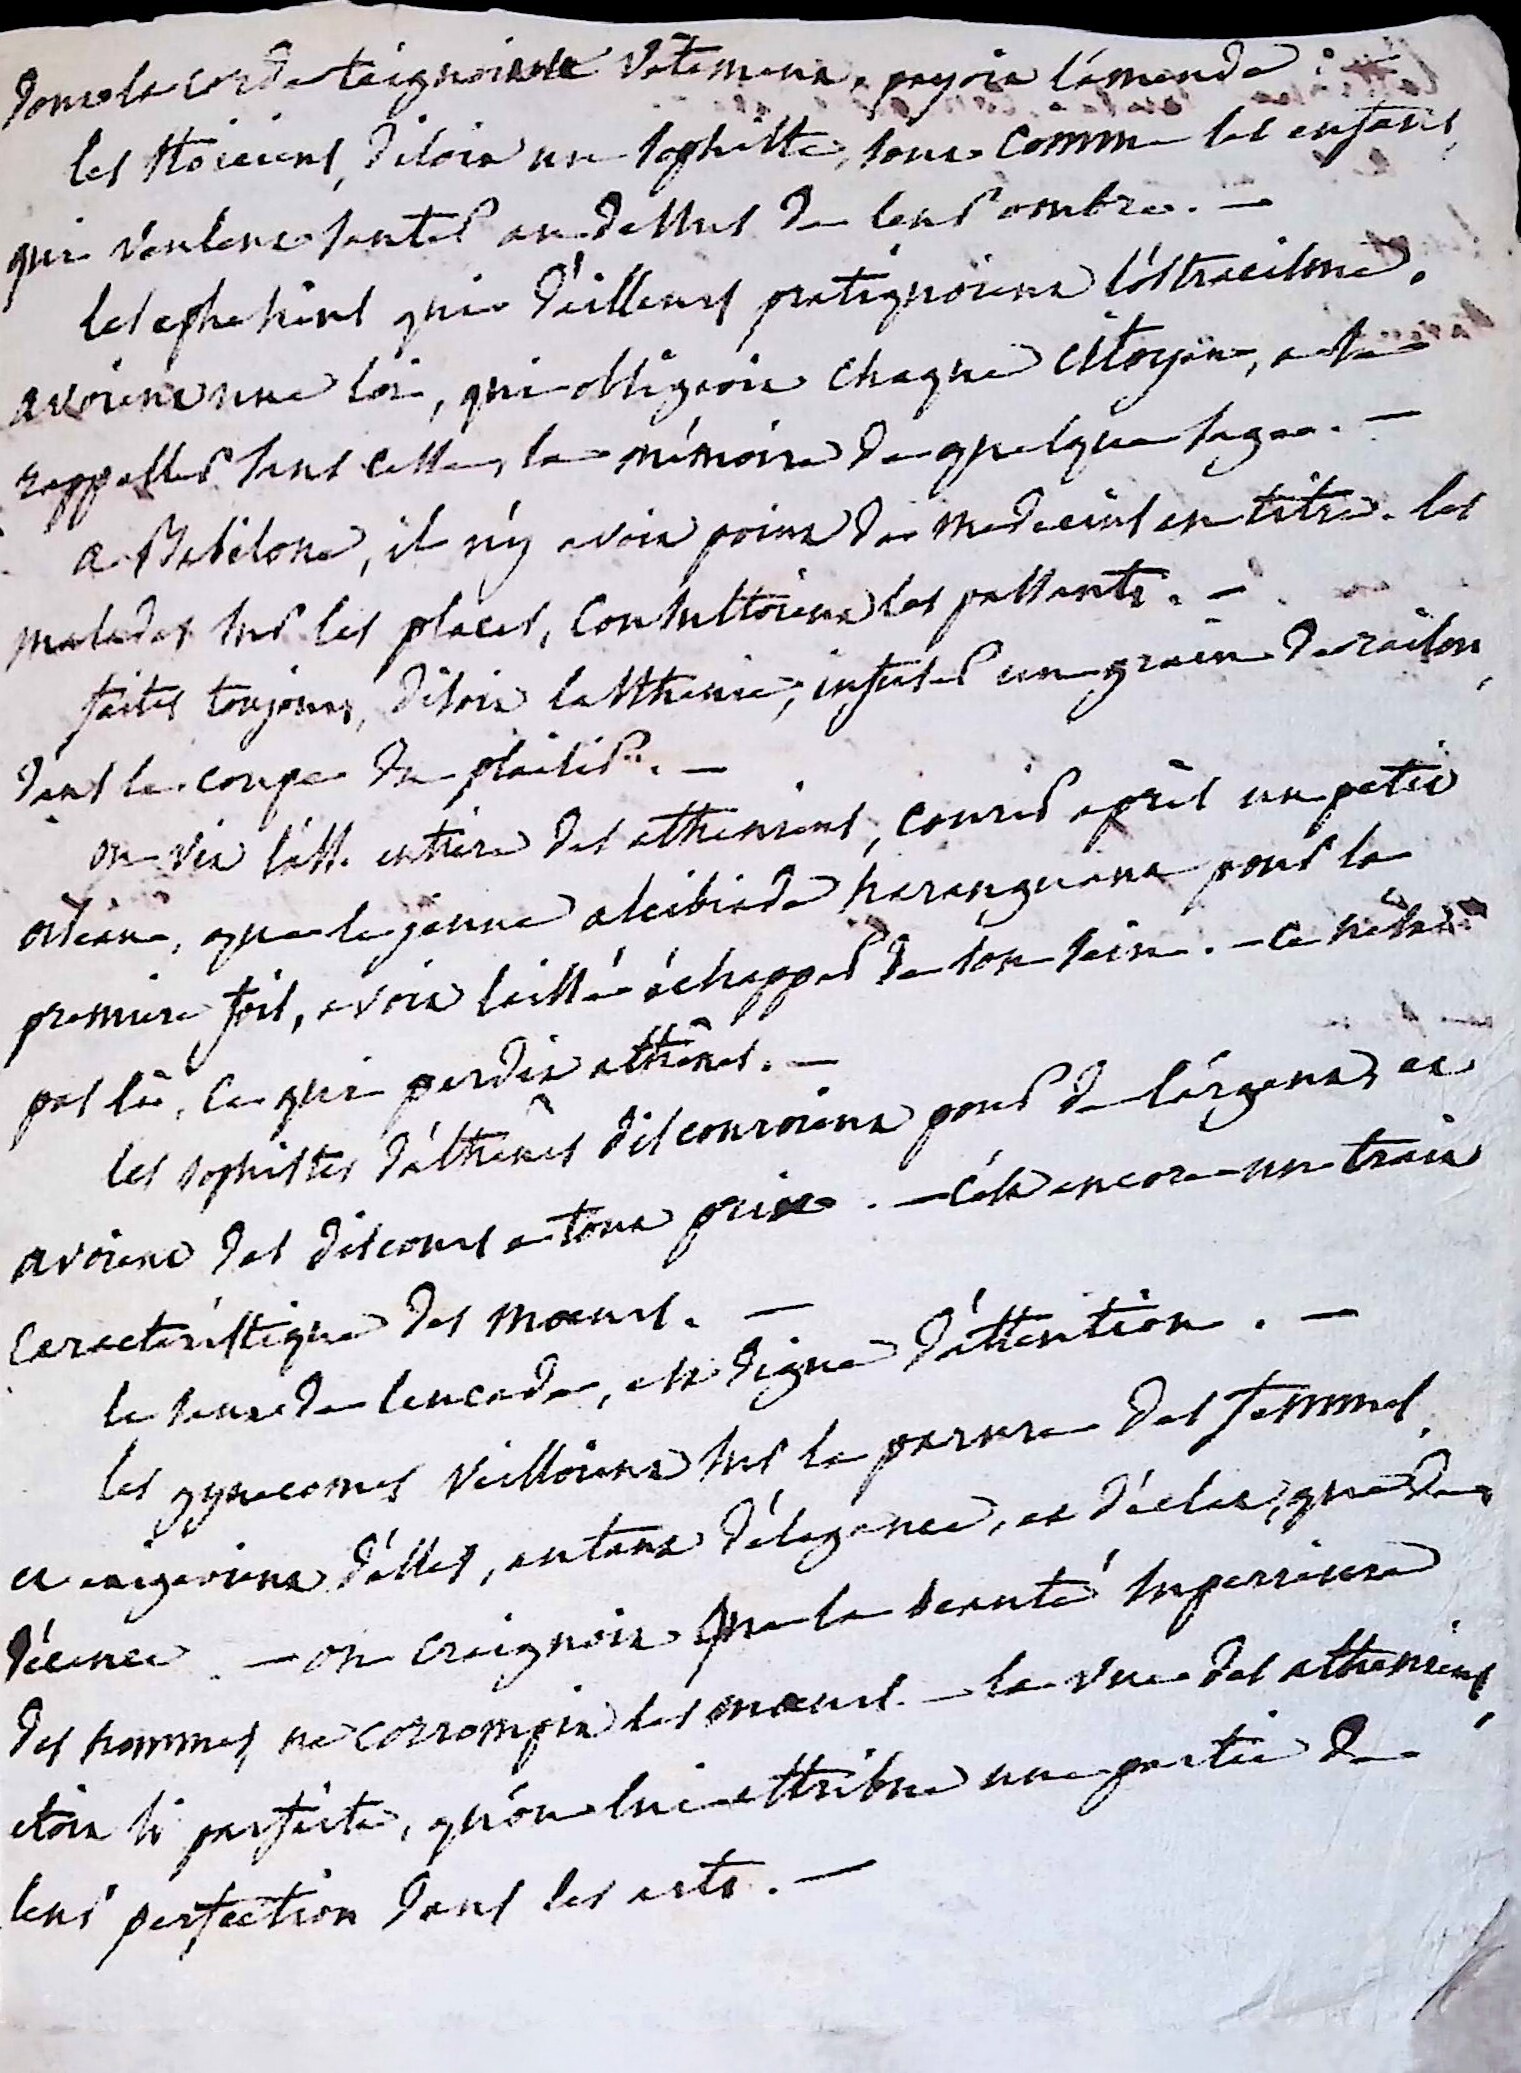 dont la corde teignoit le vêtement, payoit l'amende :
les stoiciens, disoit un sophiste, sont comme les enfans,
qui veulent sauter au dessus de leur ombre. —
les ephesiens qui d'ailleurs pratiquoient l'ostracisme,
avoient une loi, qui obligeoit chaque citoyen, a se
rappeller sans cesse, la mémoire de quelque sage. —
a Babilone, il n'y avoit point de medecins en titre. les
malades sur les places, consultoient les passants. —
faites toujours, disoit lasthenie, infuser un grain de raison,
dans la coupe du plaisir. —
on vit l'ass. entière des atheniens, courir après un petit
oiseau, que le jeune alcibiade haranguant pour la
premiere fois, avoit laissé échapper de son sein. — ce n'étoit
pas là, ce qui perdit athênes. —
les sophistes d'athênes discouroient pour de l'argent, et
avoient des discours a tout prix. — c'est encore un trait
caractéristique des mœurs. —
le saut de leucade, est digne d'attention. —
les gynecomes veilloient sur la parure des femmes,
et exigeoient d'elles, autant d'élégance, et d'éclat, que de
décence. — on craignoit que la beauté superieure
des hommes, ne corrompit les mœurs. — la vue des atheniens,
etoit si parfaite, qu'on lui attribue une partie de
leur perfection dans les arts. —